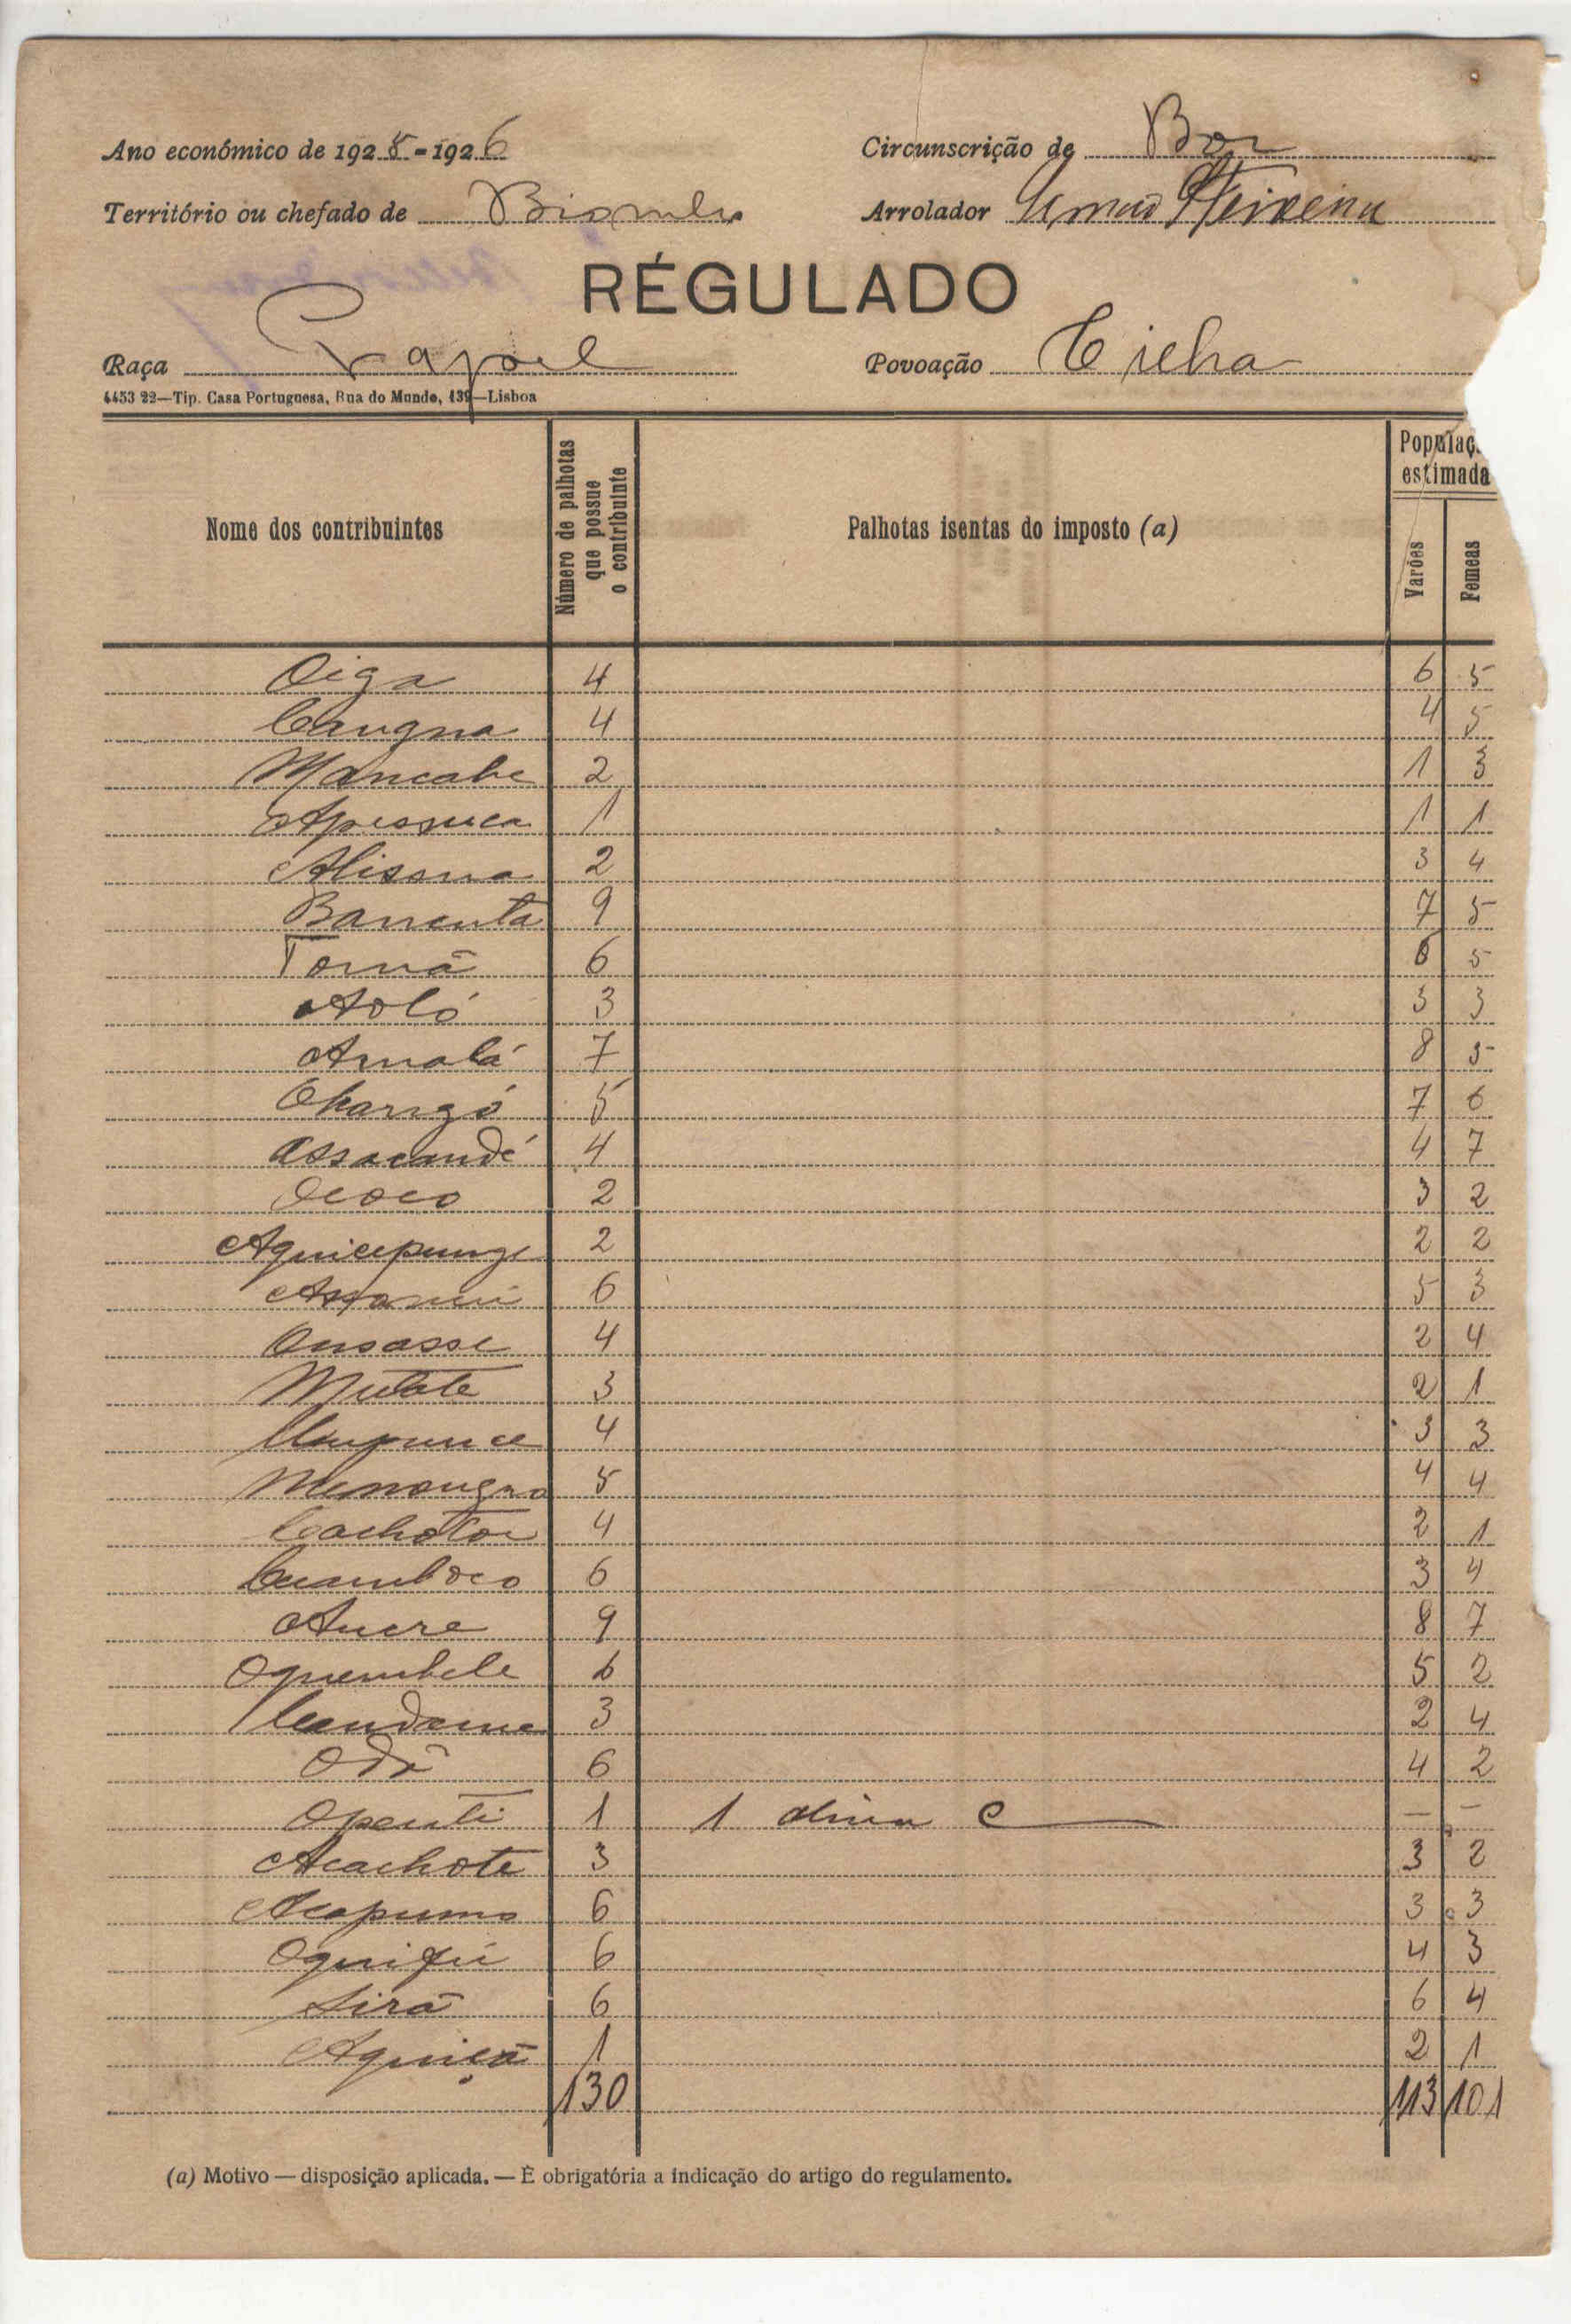 Ano económico de 1925-1926 Circunscrição de Bor
Território ou chefado de Arrolador
RÉGULADO
Raça Papel Povoação
4453 22—Tip. Casa Portuguesa, Rua do Mundo, 139—Lisboa
Nome dos contribuintes Número de palhotas que possue o contribuinte Palhotas isentas do imposto (a) Populaç estimada
Varões Femeas
Oiga 4 6 5
Caugna 4 4 5
Mancabe 2 1 3
Apissuca 1 1 1
2 3 4
Barrenta 9 7 5
Tomã 6 6 5
Aoló 3 3 3
Amalá 7 8 5
Ohangó 5 7 6
Assacandé 4 4 7
Ococo 2 3 2
2 2 2
6 5 3
Onsasse 4 2 4
3 2 1
4 3 3
5 4 4
Cachotoe 4 2 1
6 3 4
Aucre 9 8 7
Oquembele 6 5 2
3 2 4
6 4 2
Openti 1 1 — -
Acachote 3 3 2
Acapumo 6 3 3
6 4 3
Sirã 6 6 4
1 2 1
130 113 101
(a) Motivo — disposição aplicada. — É obrigatória a indicação do artigo do regulamento.